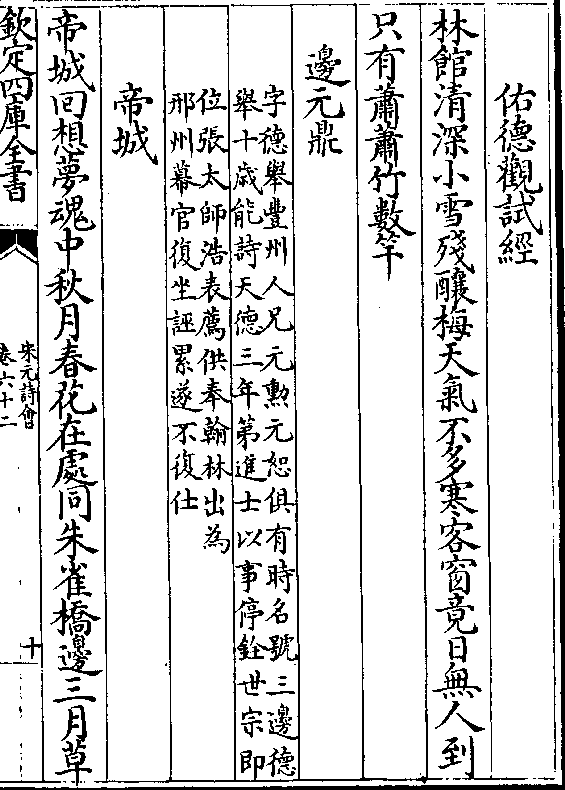 佑德觀試經
林館清深小雪殘釀梅天氣不多寒客窗竟日無人到
只有蕭蕭竹數竿
邊元鼎
字德舉豐州人兄元勳元恕俱有時名號三邊德
舉十歲能詩天德三年第進士以事停銓世宗即
位張太師浩表薦供奉翰林出為
邢州幕官復坐誣累遂不復仕
帝城
帝城回想夢魂中秋月春花在處同朱雀橋邊三月草
欽定四庫全書
宋元詩會
卷六十二
十